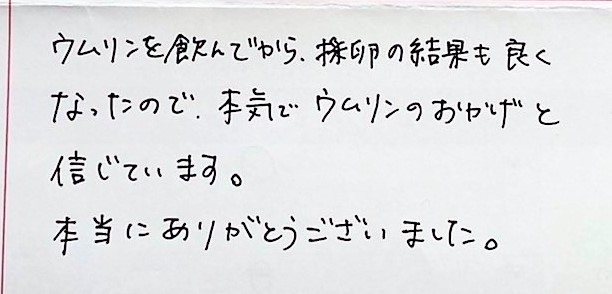 ウムリンを飲んでから、採卵の結果も良く
なったので、本気でウムリンのおかげと
信じています。
本当にありがとうございました。